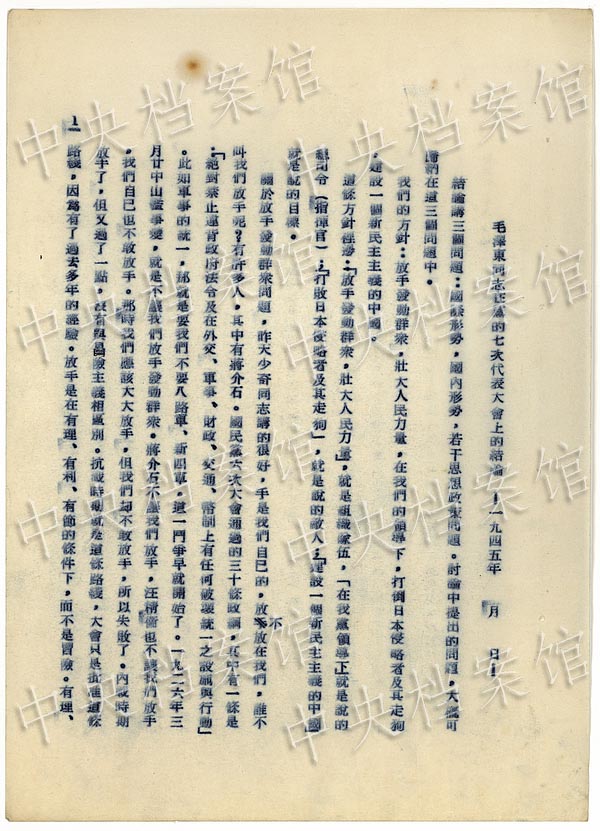 毛澤東同志在黨的七次代表大會上的結論——一九四五年　月　日——
結論講三個問題：國際形勢，國內形勢，若干思想政策問題。討論中提出的問題，大概可
歸納在這三個問題中。
我們的方針：放手發動群衆，壯大人民力量，在我們的領導下，打倒日本侵略者及其走狗
，建設一個新民主主義的中國。
這條方針裡邊：「放手發動群衆，壯大人民力量，就是組織隊伍，「在我黨領導下」就是說的
總司令（指揮官），「打敗日本侵略者及其走狗」，就是說的敵人，「建設一個新民主主義的中國」
就是說的目標。
關於放手發動群衆問題，昨天少奇同志講的很好，手是我們自己的，放不放在我們，誰不
叫我們放手呢？有許多人，其中有蔣介石。國民黨六次大會通過的三十條政綱，其中有一條是
：「絕對禁止違背政府法令及在外交、軍事、財政、交通、幣制上有任何破壞統一之設施與行動」
。此如軍事的統一，那就是要我們不要八路軍、新四軍，這一鬥爭早就開始了。一九二六年三
月廿中山艦事變，就是不讓我們放手發動群衆。蔣介石不讓我們放手，汪精衛也不讓我們放手
，我們自己也不敢放手。那時我們應該大大放手，但我們却不敢放手，所以失敗了。內戰時期
放手了，但又過了一點，沒有與冒險主義相區別。抗戰時期就是這條路綫，大會只是批准這條
路綫，因為有了過去多年的經驗。放手是在有理、有利、有節的條件下，而不是冒險。有理、
1
中央档案馆
中央档案馆
中央档案馆
中央档案馆
中央档案馆
中央档案馆